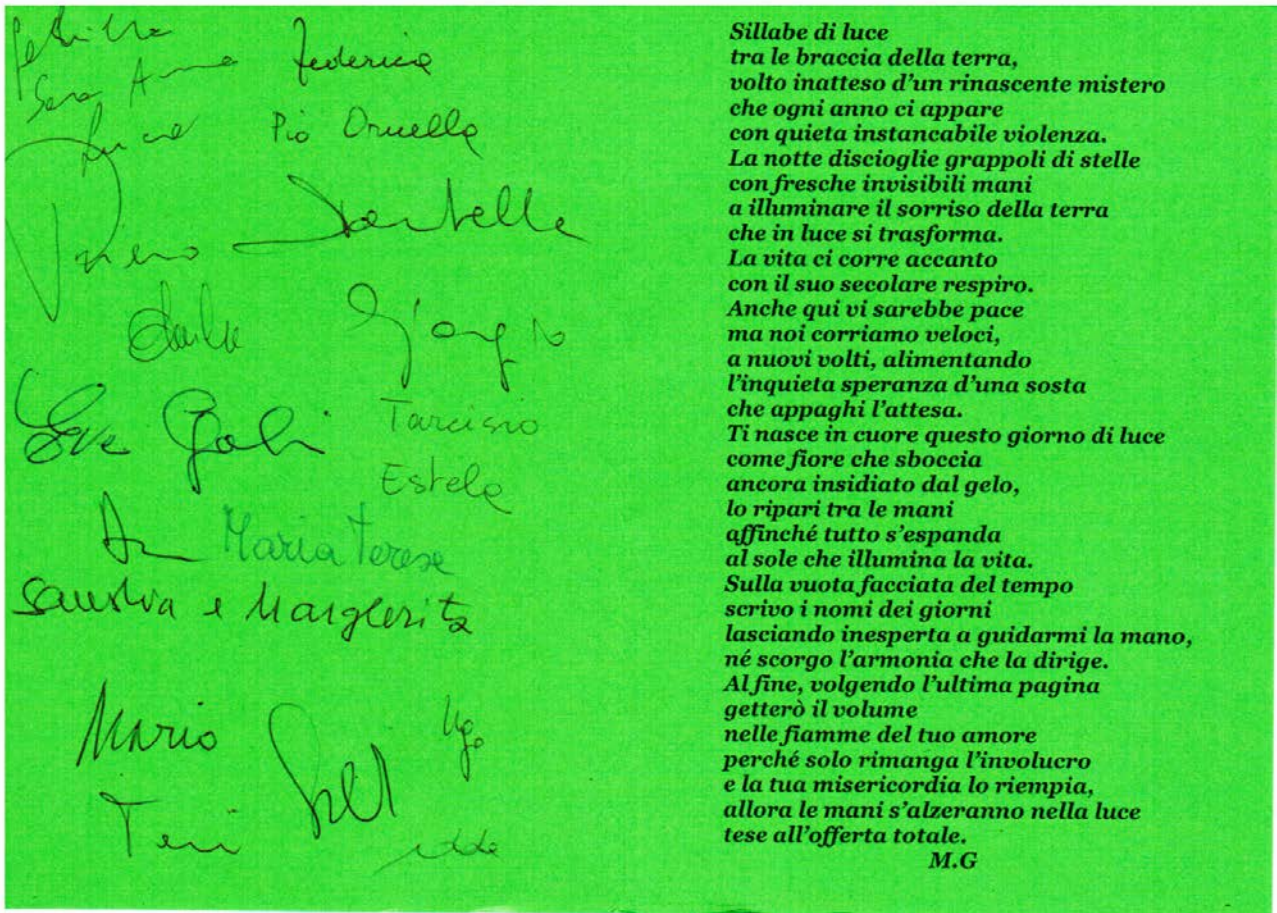 Federica
Sara Anna
Pio Ornella
Giorgio
Eva Gabi
Tarcisio
Estela
Maria Teresa
e Margherita
Mario
Ugo
Teri
Sillabe di luce
tra le braccia della terra,
volto inatteso d'un rinascente mistero
che ogni anno ci appare
con quieta instancabile violenza.
La notte discioglie grappoli di stelle
con fresche invisibili mani
a illuminare il sorriso della terra
che in luce si trasforma.
La vita ci corre accanto
con il suo secolare respiro.
Anche qui vi sarebbe pace
ma noi corriamo veloci,
a nuovi volti, alimentando
l'inquieta speranza d'una sosta
che appaghi l'attesa.
Ti nasce in cuore questo giorno di luce
come fiore che sboccia
ancora insidiato dal gelo,
lo ripari tra le mani
affinché tutto s'espanda
al sole che illumina la vita.
Sulla vuota facciata del tempo
scrivo i nomi dei giorni
lasciando inesperta a guidarmi la mano,
né scorgo l'armonia che la dirige.
Al fine, volgendo l'ultima pagina
getterò il volume
nelle fiamme del tuo amore
perché solo rimanga l'involucro
e la tua misericordia lo riempia,
allora le mani s'alzeranno nella luce
tese all'offerta totale.
M.G